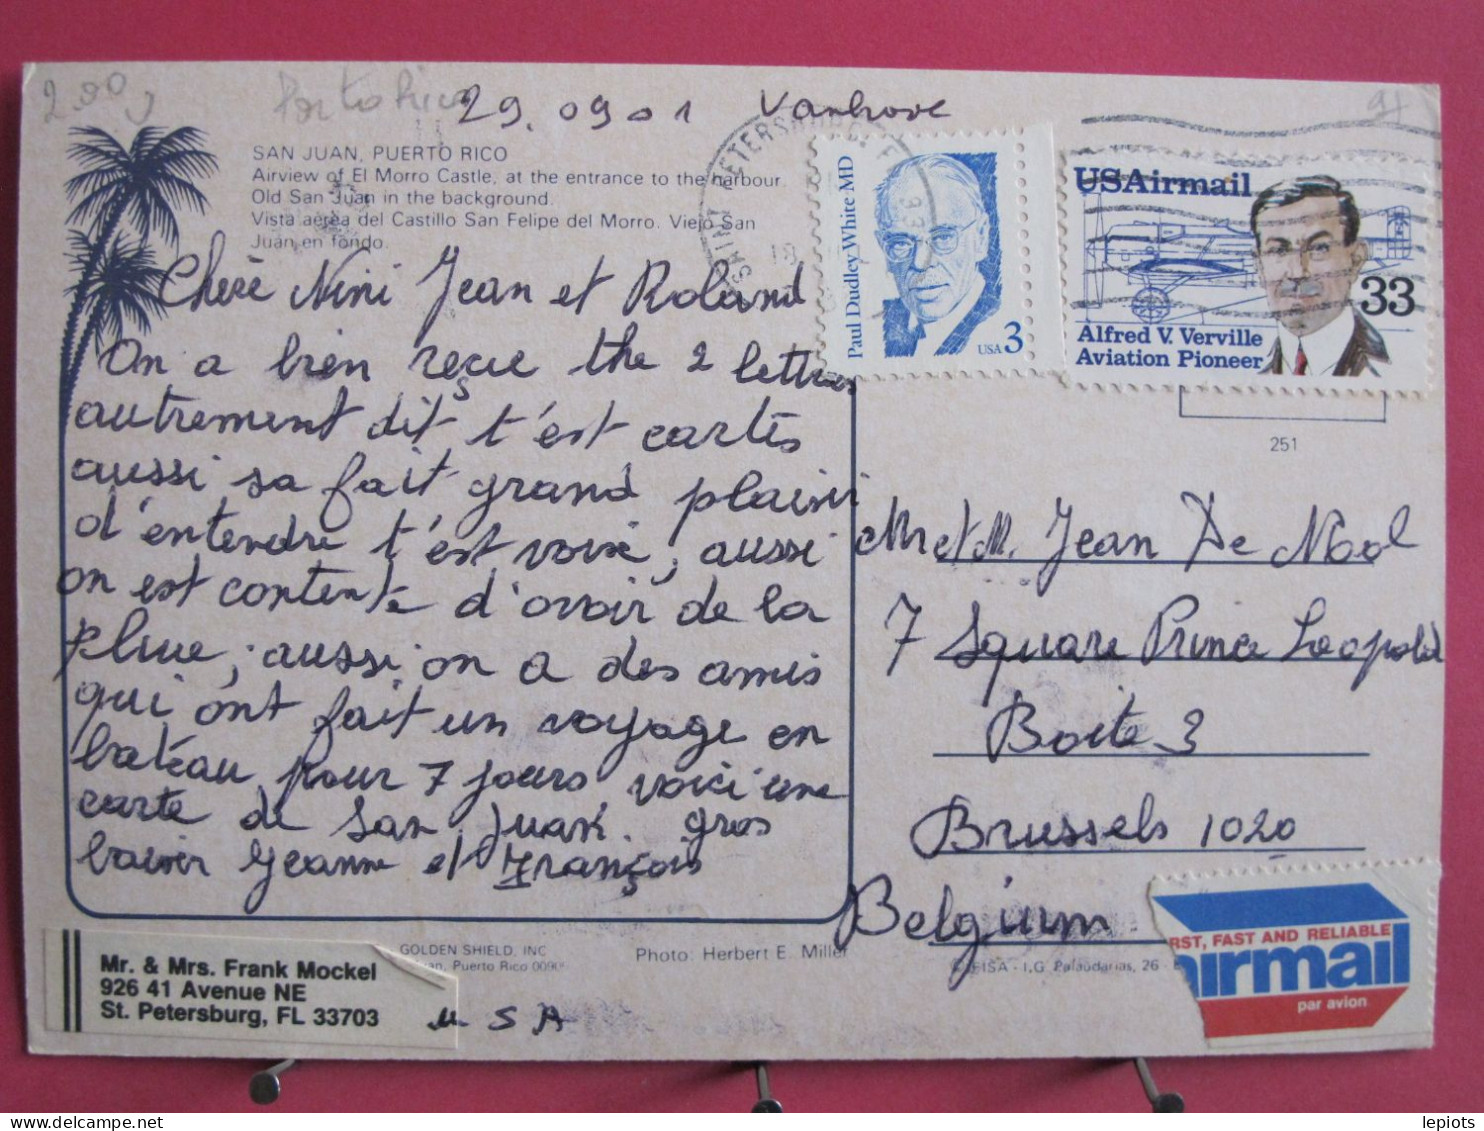 2.00
Porto Rico
29.09 01 Vanhove
SAN JUAN, PUERTO RICO
Airview of El Morro Castle, at the entrance to the harbour.
Old San Juan in the background.
Vista aérea del Castillo San Felipe del Morro. Viejo San
Juan en fondo.
Paul Dudley White MD
USA 3
USAirmail
33
Alfred V. Verville
Aviation Pioneer
251
Chère Nini Jean et Roland
On a bien reçue the 2 lettres
autrement dit t'est cartes
aussi sa fait grand plaisir
d'entendre t'est voix, aussi
on est contente d'avoir de la
pluie, aussi on a des amis
qui ont fait un voyage en
bateau pour 7 jours voici une
carte de San Juan. gros
baiser Jeanne et François
Mr et M. Jean De Nool
7 Square Prince Leopold
Boite 3
Brussels 1020
Belgium
GOLDEN SHIELD, INC
Puerto Rico
Photo: Herbert E. Miller
I.G. Palaudarias, 26 -
Mr. & Mrs. Frank Mockel
926 41 Avenue NE
St. Petersburg, FL 33703
U S A
RST, FAST AND RELIABLE
airmail
par avion
lepiots